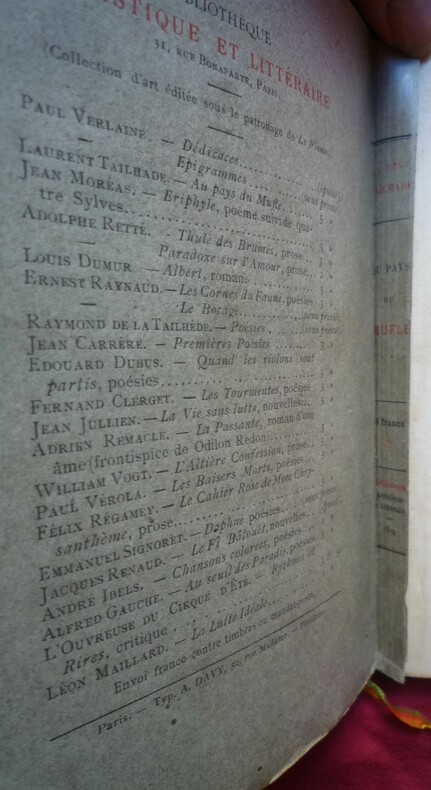 BLIOTHÈQUE
ISTIQUE ET LITTÉRAIRE
31, RUE BONAPARTE, PARIS
(Collection d'art éditée sous le patronage de La Plume)
PAUL VERLAINE. — Dédicaces...... (épuisé)
— Epigrammes...... (sous presse)
LAURENT TAILHADE. — Au pays du Mufle...... 3 »
JEAN MORÉAS. — Eriphyle, poème suivi de qua-
tre Sylves...... 3 »
ADOLPHE RETTÉ. — Thulé des Brumes, prose... 3 »
— Paradoxe sur l'Amour, prose..
LOUIS DUMUR — Albert, roman...... 3 »
ERNEST RAYNAUD. — Les Cornes du Faune, poésies 3 »
— Le Bocage...... (sous presse)
RAYMOND DE LA TAILHÈDE. — Poésies . (sous presse)
JEAN CARRÈRE. — Premières Poésies ...... 3 »
EDOUARD DUBUS. — Quand les violons sont
partis, poésies...... 3 »
FERNAND CLERGET. — Les Tourmentes, poésies 3 »
JEAN JULLIEN. — La Vie sans lutte, nouvelles... 3 »
ADRIEN REMACLE. — La Passante, roman d'une
âme (frontispice de Odilon Redon)...... 3 »
WILLIAM VOGT. — L'Altière Confession, prose.. 3 »
PAUL VÉROLA. — Les Baisers Morts, poésies. 3 »
FÉLIX RÉGAMEY. — Le Cahier Rose de Mme Chry-
santhème, prose......
EMMANUEL SIGNORET. — Daphné poésies...
JACQUES RENAUD. — Le Fi Bâtouët, nouvelles.
ANDRÉ IBELS. — Chansons colorées, poésies.
ALFRED GAUCHE. — Au seuil des Paradis, poésies
L'OUVREUSE DU CIRQUE D'ÉTÉ. — Rythmes et
Rires, critique ......
LÉON MAILLARD. — La Lutte Idéale......
Envoi franco contre timbres ou mandat-poste.
Paris. — Typ. A. DAVY, 52, rue Madame. —
AILHADE
PAYS
DU
MUFLE
francs